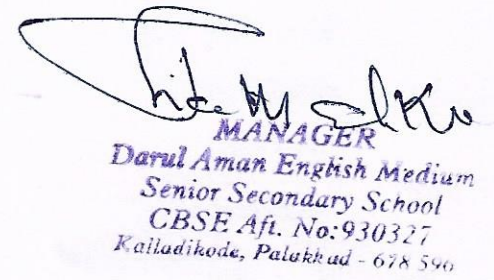 MANAGER
Darul Aman English Medium
Senior Secondary School
CBSE Aft. No:930327
Kalladikode, Palakkad - 678 596